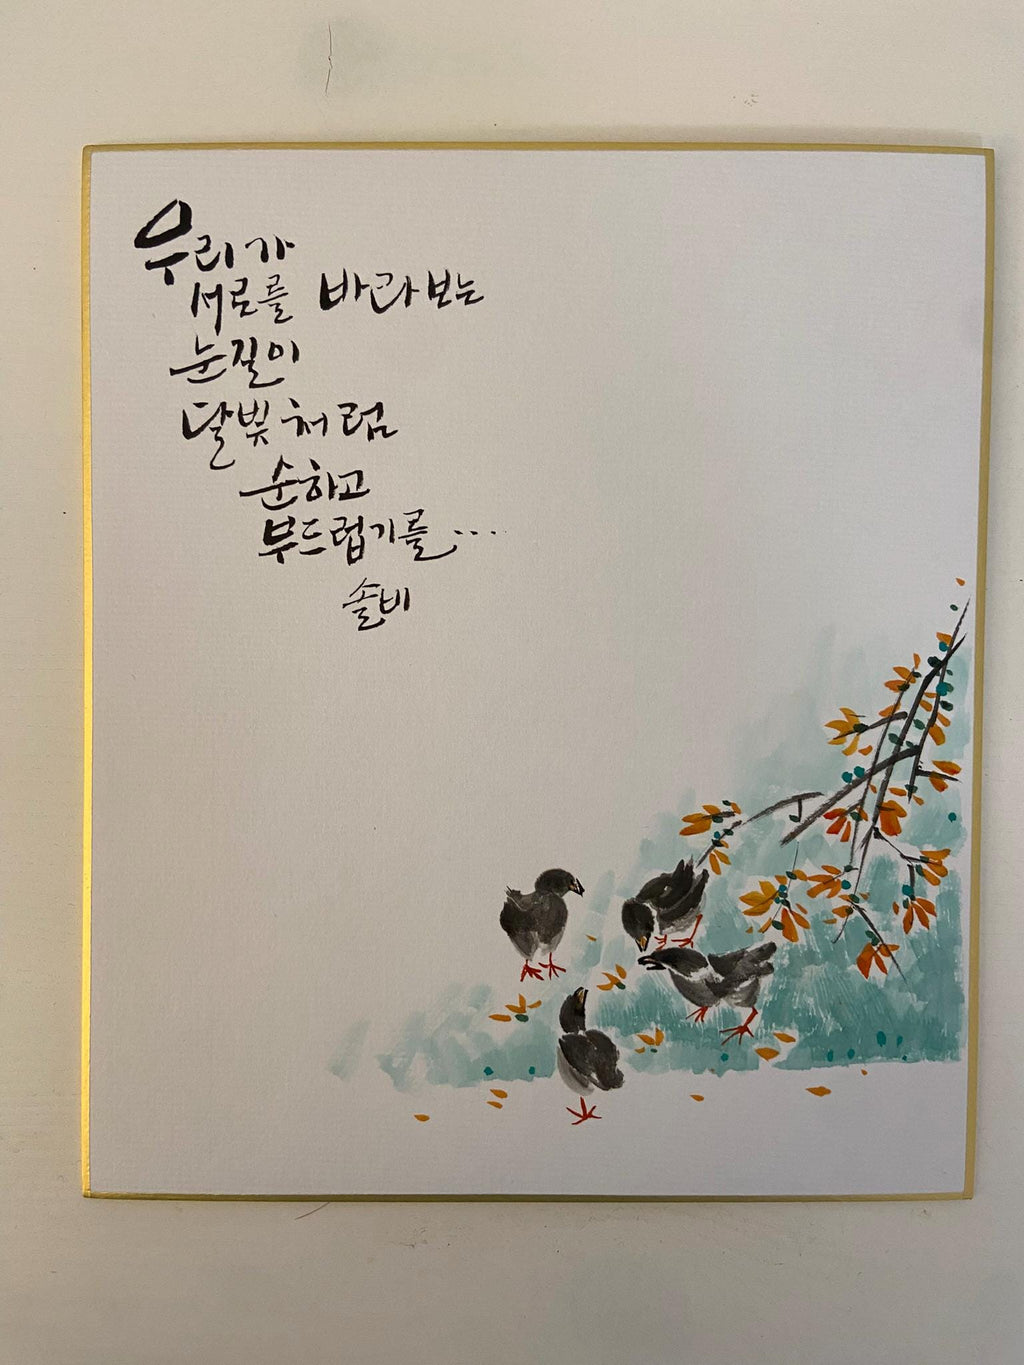 우리가
서로를 바라보는
눈길이
달빛처럼
순하고
부드럽기를...
솔비